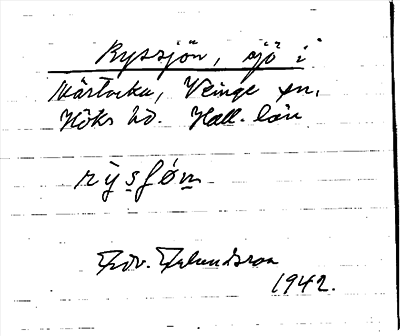 Ryssjön, sjö i
Mästocka, Veinge sn,
Höks hd. Hall. län
rỳsʃøn
Edv. Edlundsson
1942.